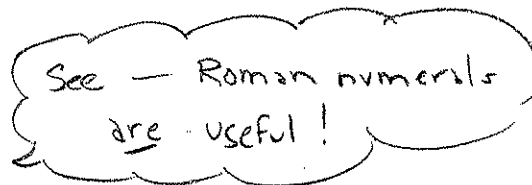 See — Roman numerals
are useful!